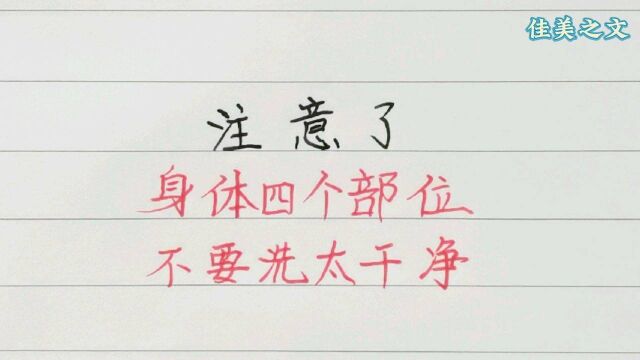 佳美之文
注意了
身体四个部位
不要洗太干净